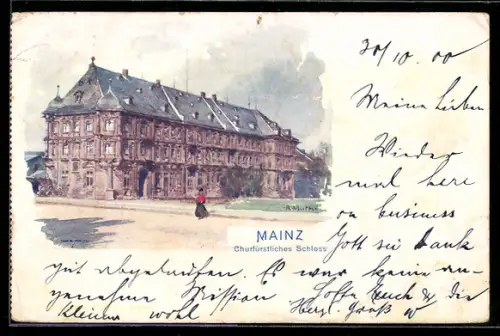 30/10.00
Meine Lieben
Wieder
mal here
on business
Gott sei dank
A. Muth
MAINZ
Churfürstliches Schloss
gut abgelaufen. Es war keine an-
genehme Mission Hoffe Euch & die
kleine wohl Herzl. Gruß